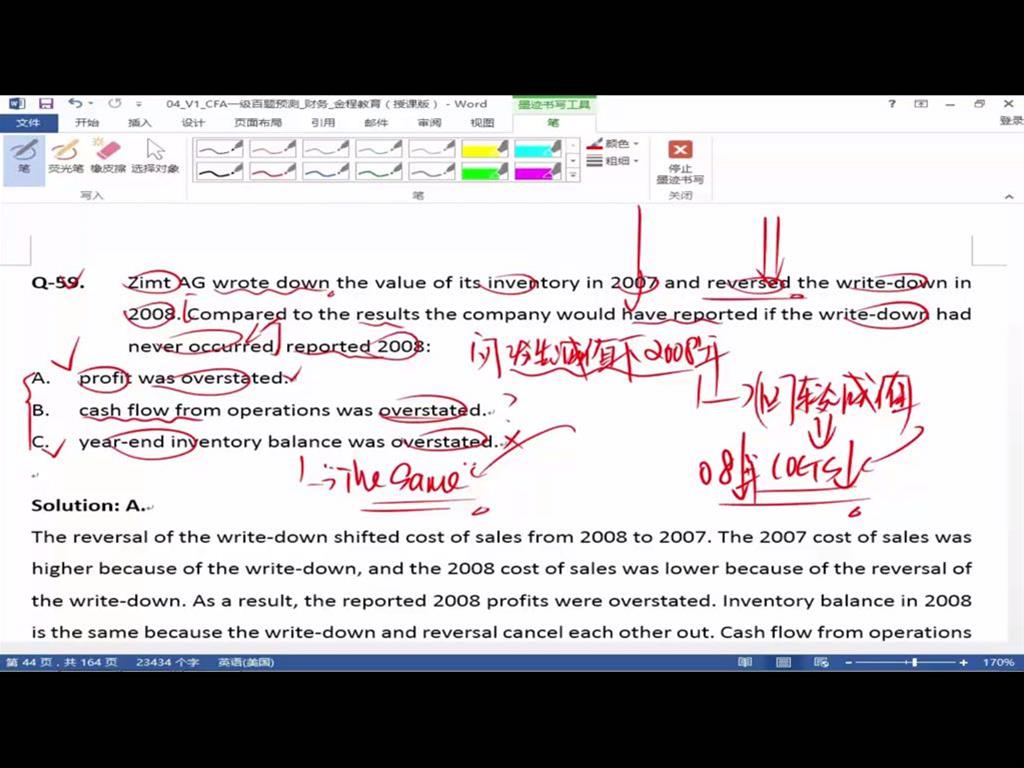 04_V1_CFA一级百题预测_财务_金程教育（授课版） - Word
墨迹书写工具
?
文件 开始 插入 设计 页面布局 引用 邮件 审阅 视图 笔 登录
笔 荧光笔 橡皮擦 选择对象
颜色
粗细
停止
墨迹书写
写入 笔 关闭
Q-59. Zimt AG wrote down the value of its inventory in 2007 and reversed the write-down in
2008. Compared to the results the company would have reported if the write-down had
never occurred, reported 2008:
问 发生减值下 2008年
A. profit was overstated.
B. cash flow from operations was overstated. ?
C. year-end inventory balance was overstated.
The Same
08年 COGS
Solution: A.
The reversal of the write-down shifted cost of sales from 2008 to 2007. The 2007 cost of sales was
higher because of the write-down, and the 2008 cost of sales was lower because of the reversal of
the write-down. As a result, the reported 2008 profits were overstated. Inventory balance in 2008
is the same because the write-down and reversal cancel each other out. Cash flow from operations
第 44 页，共 164 页 23434 个字 英语(美国) 170%